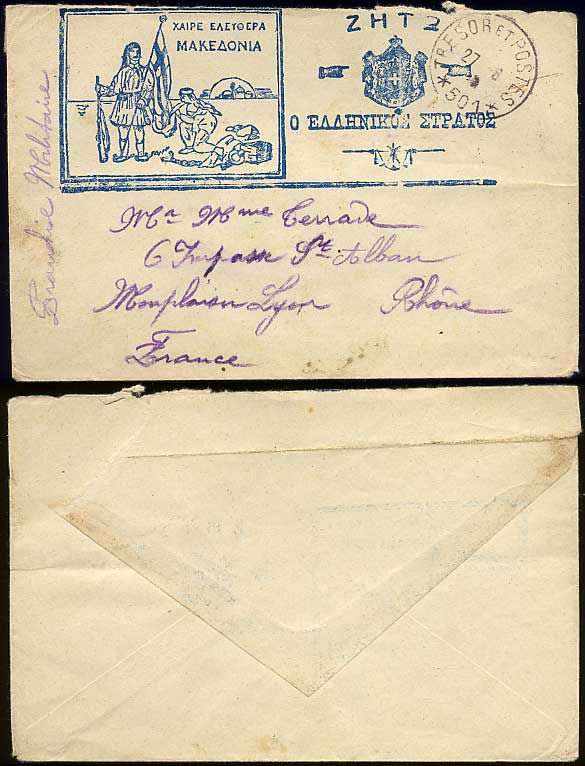 ΧΑΙΡΕ ΕΛΕΥΘΕΡΑ
ΜΑΚΕΔΟΝΙΑ
ΖΗΤΩ
Ο ΕΛΛΗΝΙΚΟΣ ΣΤΡΑΤΟΣ
TRESOR ET POSTES
27
* 501 *
Franchise Militaire
Mr Mme Terrade
6 Impasse St. Alban
Monplaisir Lyon Rhône
France